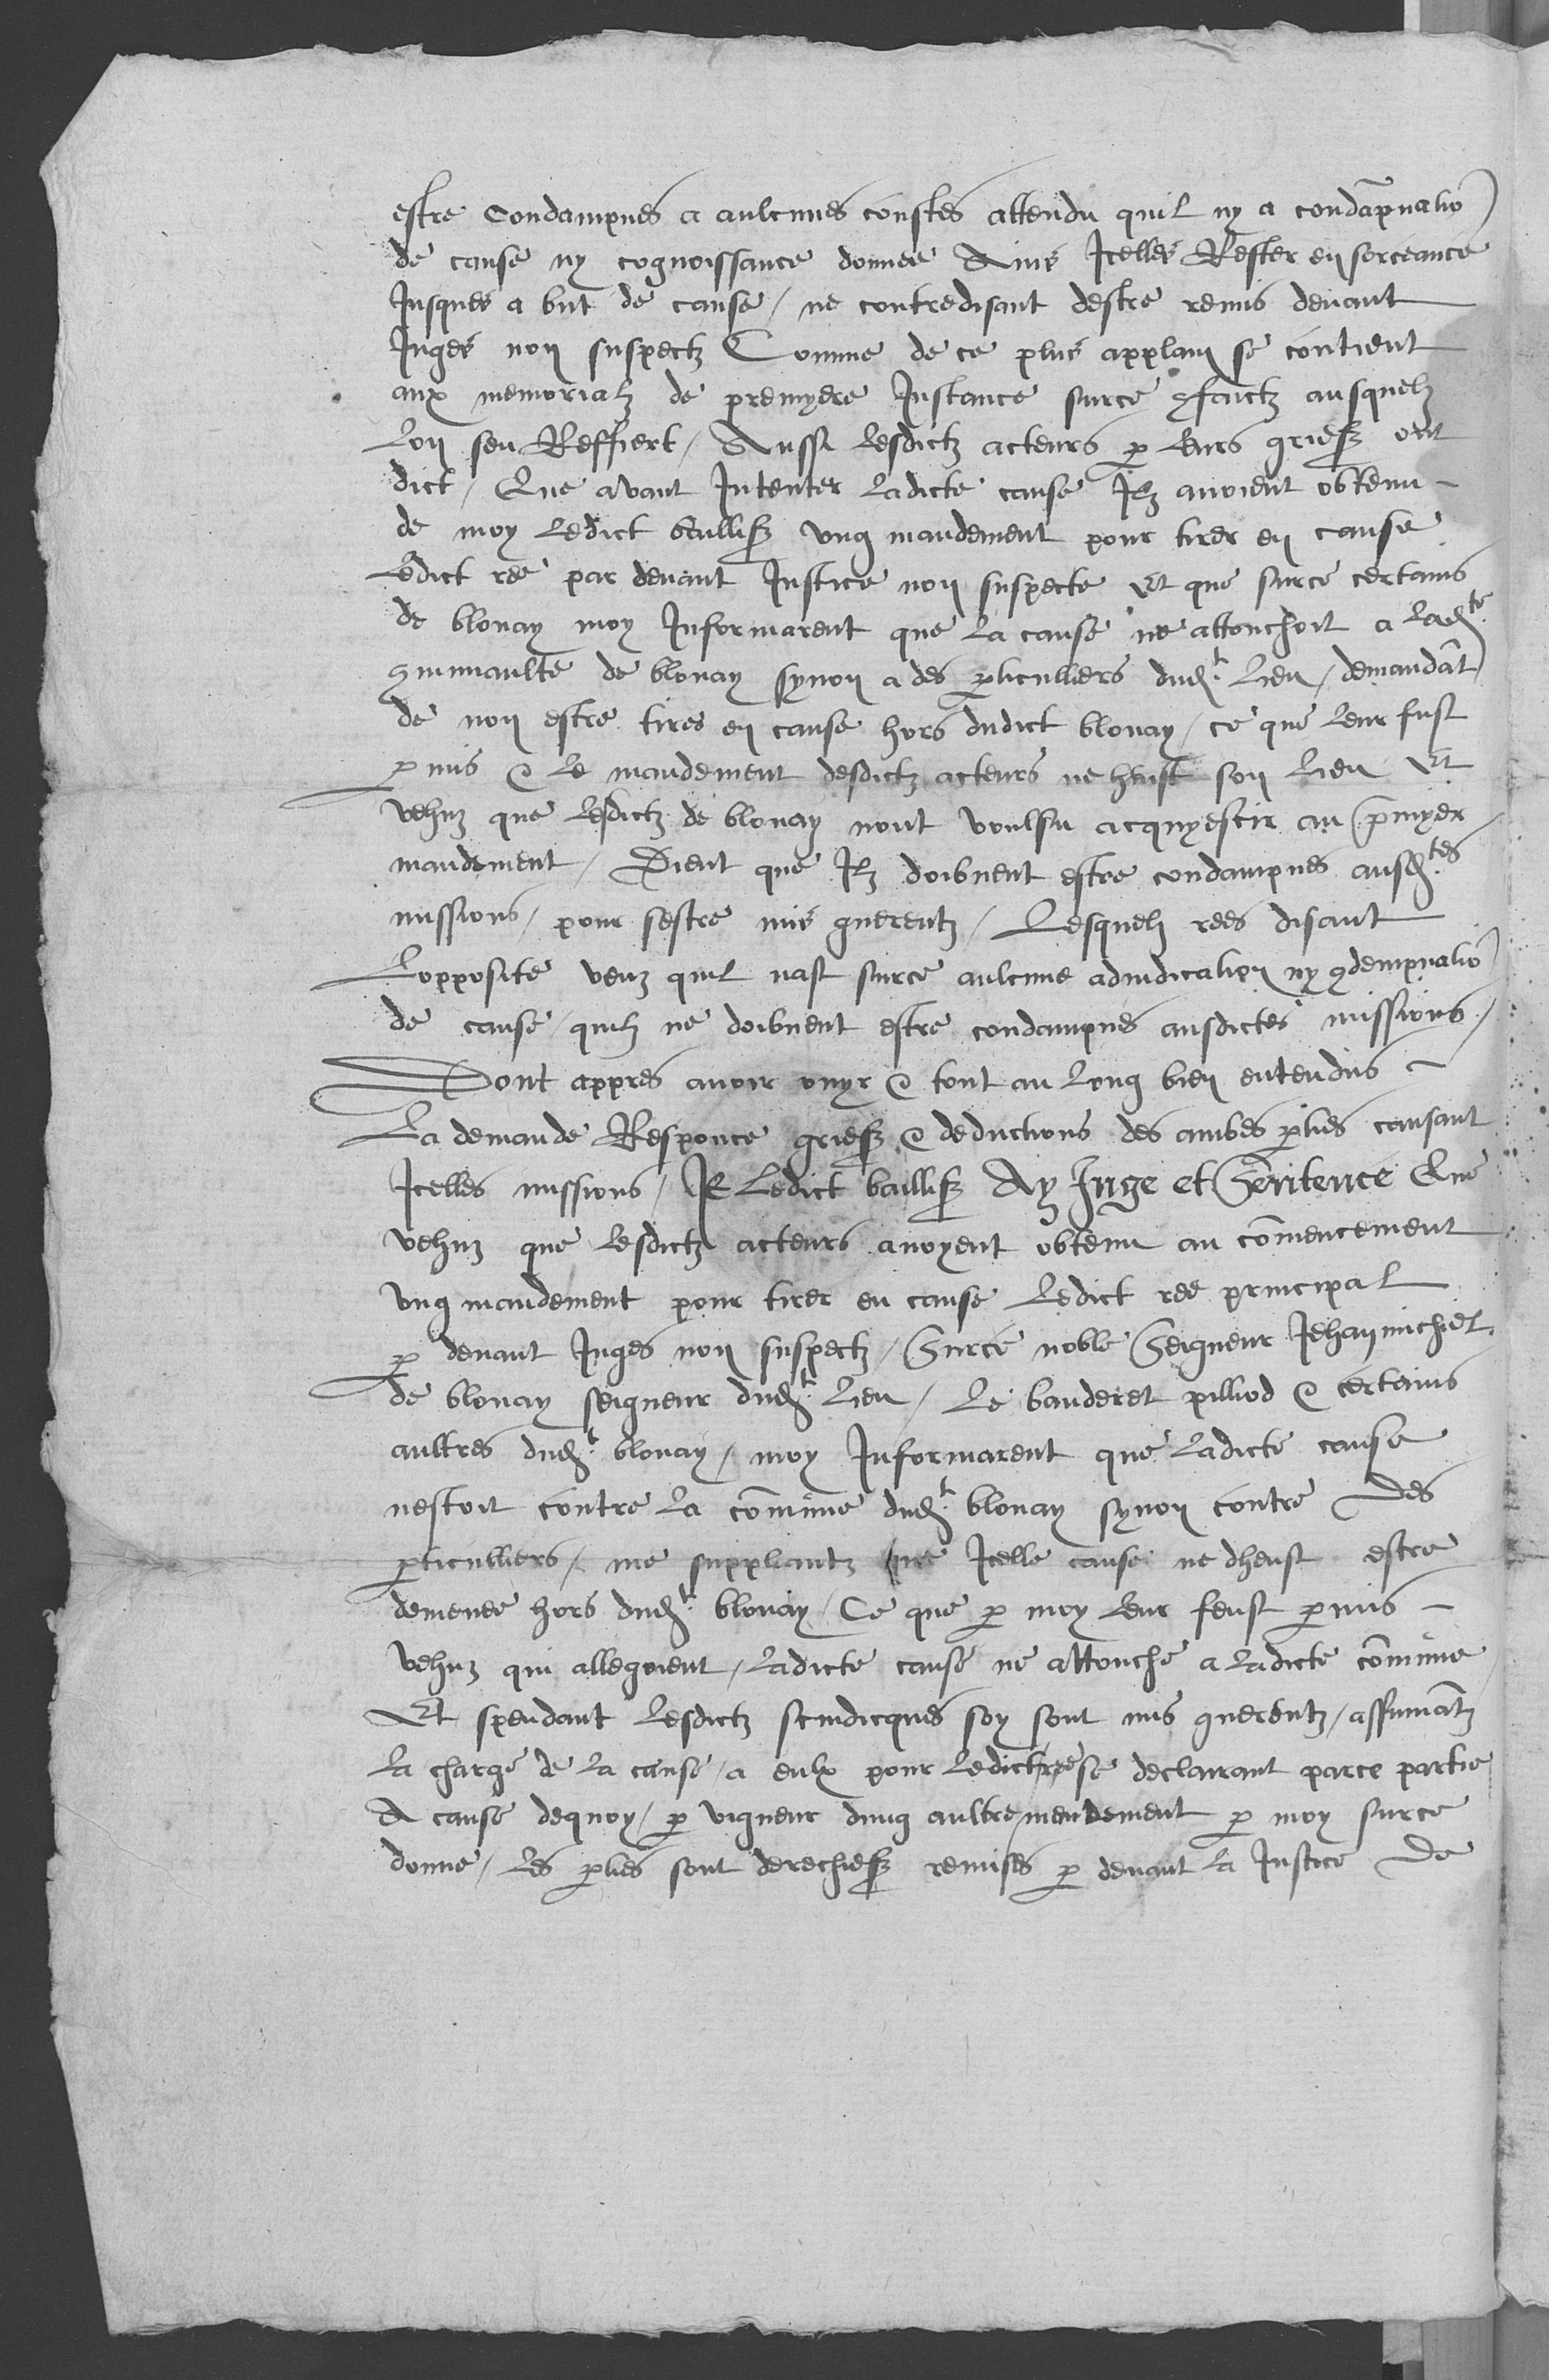 estre condampnes a aulcunes coustes attendu quil ny a condāpnatio
de cause ny cognoissance donnee Ains Icelles Rester en surceance
Jusques a but de cause / ne contredisant destre remis devant
Juges non suspectz Comme de ce plus applain se contient
aux memorialz de premyere Instance surce ꝯfaictz ausquelz
Lon sen Reffiert / Aussi lesdictz acteurs ꝑ leurs griefz ont
dict / Que avant Intenter ladicte cause Jlz avoient obtenu
de moy ledict baillifz ung mandement pour tirer en cause
Ledict ree par devant Justice non suspecte Et que surce certains
de blonay moy Informarent que la cause ne attouchoit a lad.te
ꝯmmunaulte de blonay synon a des ꝑticulliers dud.t lieu / demandāt
de non estre tires en cause hors dudict blonay / ce que leur fust
ꝑmis & le mandement desdictz acteurs ne heust son lieu Et
vehuz que lesdictz de blonay nont voulsu acquyescir au p̄myer
mandement / Dient que Jlz doibvent estre condampnes ausd.tes
missions / pour sestre mis guerentz / Lesquelz rees disant
Lopposite veuz quil nast surce aulcune adiudication ny ꝯdempnatio
de cause / quilz ne doibvent estre condampnes ausdictes missions /
Dont appres avoir ouyr & tout au long bien entendus
La demande Responce griefz & deductions des ambes ꝑties causant
Icelles missions / Je Ledict baillifz Ay Juge et Sentence Que
vehuz que lesdictz acteurs avoyent obtenu au cōmencement
ung mandement pour tirer en cause ledict ree principal
ꝑ devant Juges non suspectz / Surce noble Seigneur Jehan michiel
de blonay seigneur dud.t lieu / Le banderet pilliod & certains
aultres dud.t blonay / moy Informarent que ladicte cause
nestoit contre la cōmune dud.t blonay synon contre des
ꝑticulliers / me suppliantz que Icelle cause ne dheust estre
demenee hors dud.t blonay / Ce que ꝑ moy leur feust ꝑmis
vehuz qui allegoient / ladicte cause ne attouche a ladicte cōmune
Et spendant lesdictz scindicques soy sont mis guerentz / assumātz
la charge de la cause / a eulx pour ledict ree se declairant parce partie
A cause dequoy / ꝑ vigueur dung aultre mendement ꝑ moy surce
donne / les ꝑties sont derechiefz remises ꝑ devant la Justice de